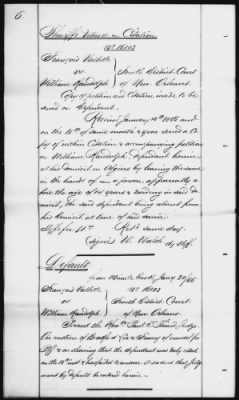 6.
Sheriff's Return on Citation
No 16103
François Vallette
vs. Fourth District Court
William Randolph of New Orleans.
Copy of petition and citation issued to be
served on Defendant.
Received January 1866 and
on the 15th of same month & year served a Co-
py of within Citation & accompanying petition
on William Randolph defendant herein
at his domicil in Algiers by leaving the same
in the hands of a person apparently a-
bove the age of years & residing in said do-
micil, the said defendant being absent from
his domicil at time of said service
Ret'd same day.
signed W. Walsh Dy Shff.
Default
from Minute Book Jany 30/66
François Vallette No
vs Fourth District Court
William Randolph of New Orleans
Present the Hon. Judge.
On motion of & of counsel for
Plff & on showing that the defendant was duly cited
on the 15th inst & has failed to answer it is ordered that judg-
ment by default be entered herein